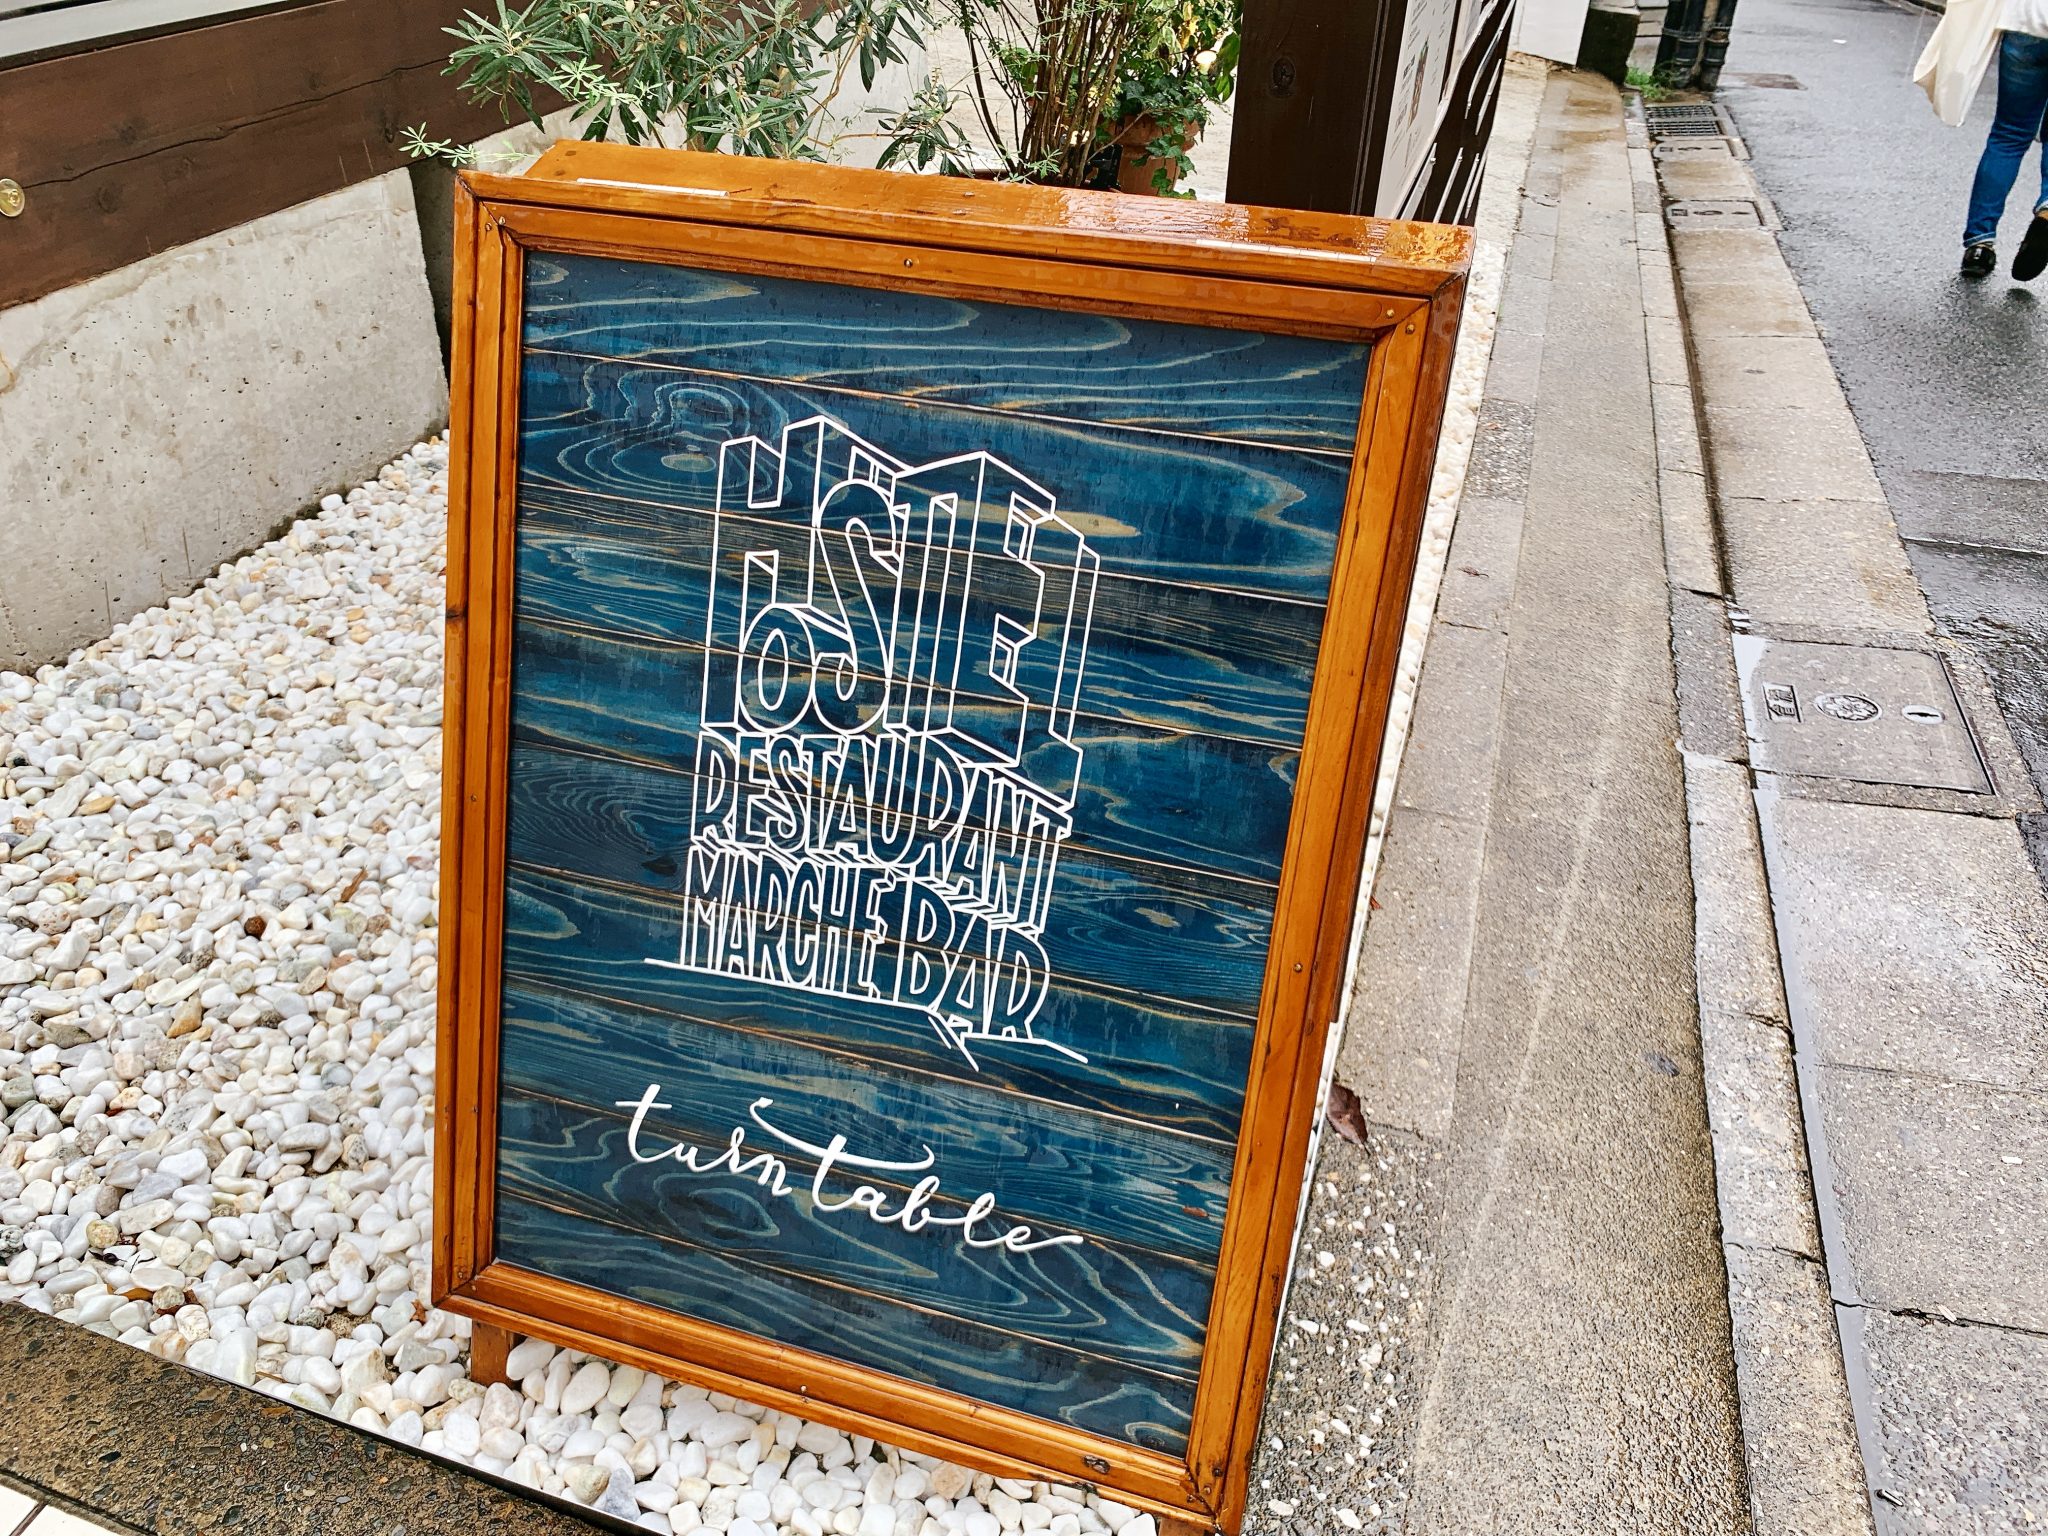 HOSTEL
RESTAURANT
MARCHE BAR
turn table